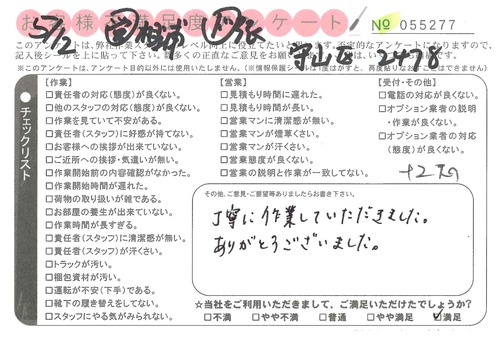 お客様満足度アンケート
№ 055277
5/12
守山区 2478
このアンケートは、弊社作業スタッフのレベル向上に役立てたい
不定的なアンケートになりますので、
記入後シールを上に貼って下さい。
※このアンケートは、アンケート目的以外には使用いたしません。
チェックリスト
【作業】
□責任者の対応(態度)が良くない。
□他のスタッフの対応(態度)が良くない。
□作業を見ていて不安がある。
□責任者(スタッフ)に好感が持てない。
□お客様への挨拶が出来ていない。
□ご近所への挨拶・気遣いが無い。
□作業開始前の内容確認がなかった。
□作業開始時間が遅れた。
□荷物の取り扱いが雑である。
□お部屋の養生が出来ていない。
□作業時間が長すぎる。
□責任者(スタッフ)に清潔感が無い。
□責任者(スタッフ)が汗くさい。
□トラックが汚い。
□梱包資材が汚い。
□運転が不安(下手)である。
□靴下の履き替えをしてない。
□スタッフにやる気がみられない。
【営業】
□見積もり時間に遅れた。
□見積もり時間が長い。
□営業マンに清潔感が無い。
□営業マンが煙草くさい。
□営業マンが汗くさい。
□営業態度が良くない。
□営業の説明と作業が一致してない。
【受付・その他】
□電話の対応が良くない。
□オプション業者の説明
・作業が良くない。
□オプション業者の対応
(態度)が良くない。
その他、ご意見・ご要望等ありましたらお書き下さい。
丁寧に作業していただきました。
ありがとうございました。
☆当社をご利用いただきまして、ご満足いただけたでしょうか?
□不満 □やや不満 □普通 □やや満足 ☑満足